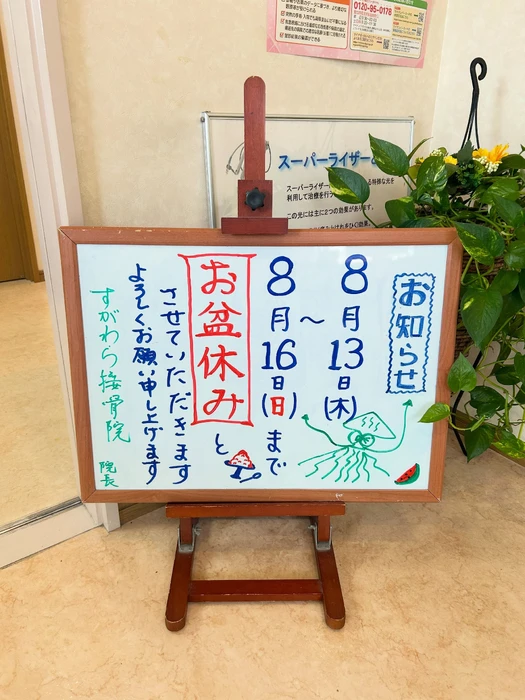 お知らせ
8月13日(木)
～
8月16日(日)まで
お盆休みと
させていただきます
よろしくお願い申し上げます
すがわら接骨院 院長
スーパーライザー
スーパーライザー
利用して治療を行
この光には主に2つの効果があります。
0120-95-0178